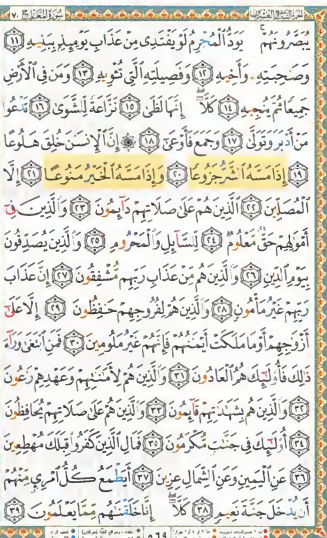 سورة المعارج ٧٠
يُبَصَّرُونَهُمْ ۚ يَوَدُّ الْمُجْرِمُ لَوْ يَفْتَدِي مِنْ عَذَابِ يَوْمِئِذٍ بِبَنِيهِ ١١
وَصَاحِبَتِهِ وَأَخِيهِ ١٢ وَفَصِيلَتِهِ الَّتِي تُؤْوِيهِ ١٣ وَمَن فِي الْأَرْضِ
جَمِيعًا ثُمَّ يُنجِيهِ ١٤ كَلَّا ۖ إِنَّهَا لَظَىٰ ١٥ نَزَّاعَةً لِّلشَّوَىٰ ١٦ تَدْعُوا
مَنْ أَدْبَرَ وَتَوَلَّىٰ ١٧ وَجَمَعَ فَأَوْعَىٰ ١٨ ۞ إِنَّ الْإِنسَانَ خُلِقَ هَلُوعًا
١٩ إِذَا مَسَّهُ الشَّرُّ جَزُوعًا ٢٠ وَإِذَا مَسَّهُ الْخَيْرُ مَنُوعًا ٢١ إِلَّا
الْمُصَلِّينَ ٢٢ الَّذِينَ هُمْ عَلَىٰ صَلَاتِهِمْ دَائِمُونَ ٢٣ وَالَّذِينَ فِي
أَمْوَالِهِمْ حَقٌّ مَّعْلُومٌ ٢٤ لِّلسَّائِلِ وَالْمَحْرُومِ ٢٥ وَالَّذِينَ يُصَدِّقُونَ
بِيَوْمِ الدِّينِ ٢٦ وَالَّذِينَ هُم مِّنْ عَذَابِ رَبِّهِم مُّشْفِقُونَ ٢٧ إِنَّ عَذَابَ
رَبِّهِمْ غَيْرُ مَأْمُونٍ ٢٨ وَالَّذِينَ هُمْ لِفُرُوجِهِمْ حَافِظُونَ ٢٩ إِلَّا عَلَىٰ
أَزْوَاجِهِمْ أَوْ مَا مَلَكَتْ أَيْمَانُهُمْ فَإِنَّهُمْ غَيْرُ مَلُومِينَ ٣٠ فَمَنِ ابْتَغَىٰ وَرَاءَ
ذَٰلِكَ فَأُولَٰئِكَ هُمُ الْعَادُونَ ٣١ وَالَّذِينَ هُمْ لِأَمَانَاتِهِمْ وَعَهْدِهِمْ رَاعُونَ
٣٢ وَالَّذِينَ هُم بِشَهَادَاتِهِمْ قَائِمُونَ ٣٣ وَالَّذِينَ هُمْ عَلَىٰ صَلَاتِهِمْ يُحَافِظُونَ
٣٤ أُولَٰئِكَ فِي جَنَّاتٍ مُّكْرَمُونَ ٣٥ فَمَالِ الَّذِينَ كَفَرُوا قِبَلَكَ مُهْطِعِينَ
٣٦ عَنِ الْيَمِينِ وَعَنِ الشِّمَالِ عِزِينَ ٣٧ أَيَطْمَعُ كُلُّ امْرِئٍ مِّنْهُمْ
أَن يُدْخَلَ جَنَّةَ نَعِيمٍ ٣٨ كَلَّا ۖ إِنَّا خَلَقْنَاهُم مِّمَّا يَعْلَمُونَ ٣٩
٥٦٩